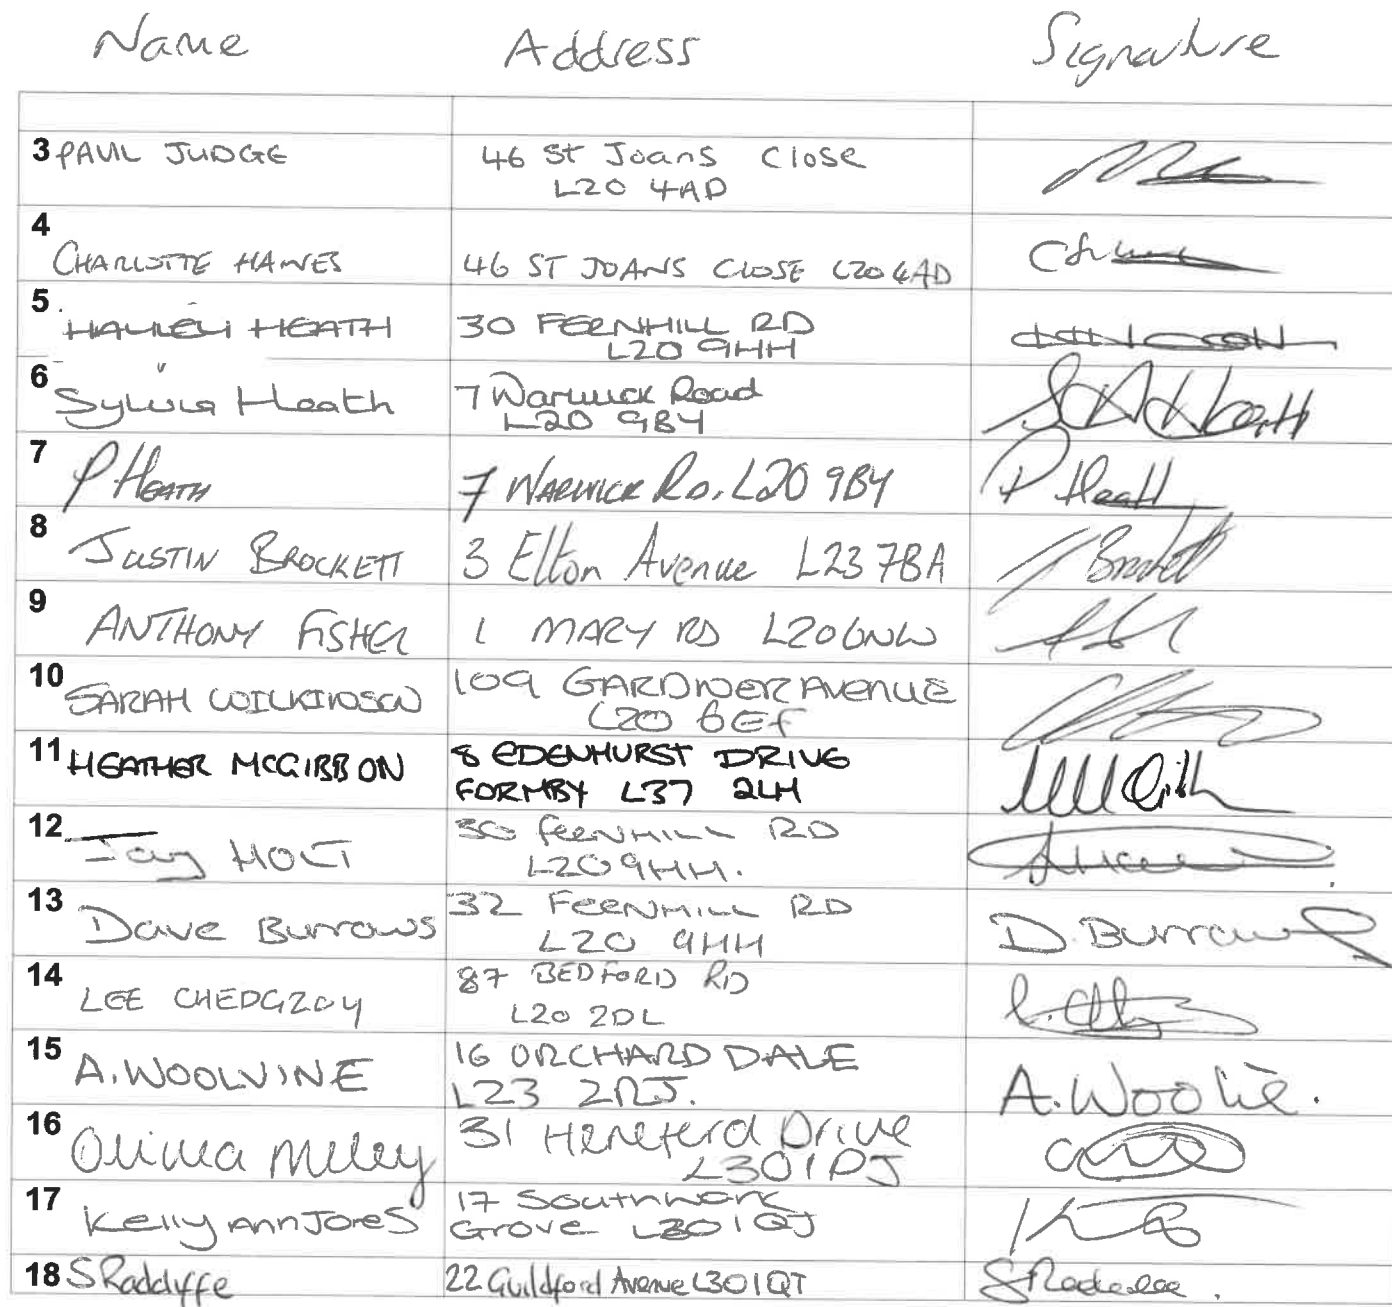 Name Address Signature
3 PAUL JUDGE 46 St Joans Close
L20 4AD
4
CHARLOTTE HAINES 46 ST JOANS CLOSE L20 4AD
5
HAYLEY HEATH 30 FERNHILL RD
L20 9HH
6
Sylvia Heath 7 Warwick Road
L20 9BY
7
P HEATH 7 WARWICK RD. L20 9BY P Heath
8
JUSTIN BROCKETT 3 Elton Avenue L23 7BA J Brockett
9
ANTHONY FISHER 1 MARY RD L20 6NW
10
SARAH WILKINSON 109 GARDNER AVENUE
L20 6EF
11 HEATHER MCGIBBON 8 EDENHURST DRIVE
FORMBY L37 2LH
12
Jay HOLT 30 FERNHILL RD
L20 9HH.
13
Dave Burrows 32 FERNHILL RD D. Burrows
L20 9HH
14
LEE CHEDGZOY 87 BEDFORD RD
L20 2DL
15
A. WOOLVINE 16 ORCHARD DALE
L23 2RJ.
16
Olivia Meley 31 Hereferd Drive
L30 1PJ
17
Kelly Ann Jones 17 Southwark
Grove L30 1QJ
18 S Radclyffe 22 Guildford Avenue L30 1QT